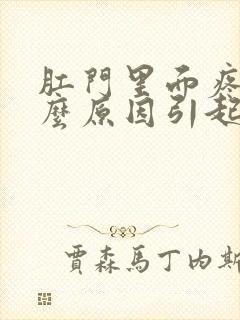 肛門里而疼
麼原因引起
賈森馬丁内斯